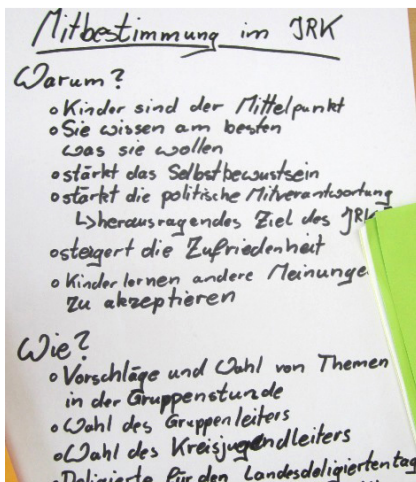 Mitbestimmung im JRK
Warum?
∘ Kinder sind der Mittelpunkt
∘ Sie wissen am besten
was sie wollen
∘ stärkt das Selbstbewustsein
∘ stärkt die politische Mitverantwortung
↳ herausragendes Ziel des JRK
∘ steigert die Zufriedenheit
∘ Kinder lernen andere Meinunge
zu akzeptieren
Wie?
∘ Vorschläge und Wahl von Themen
in der Gruppenstunde
∘ Wahl des Gruppenleiters
∘ Wahl des Kreisjugendleiters
∘ Deligierte für den Landesdeligiertentag